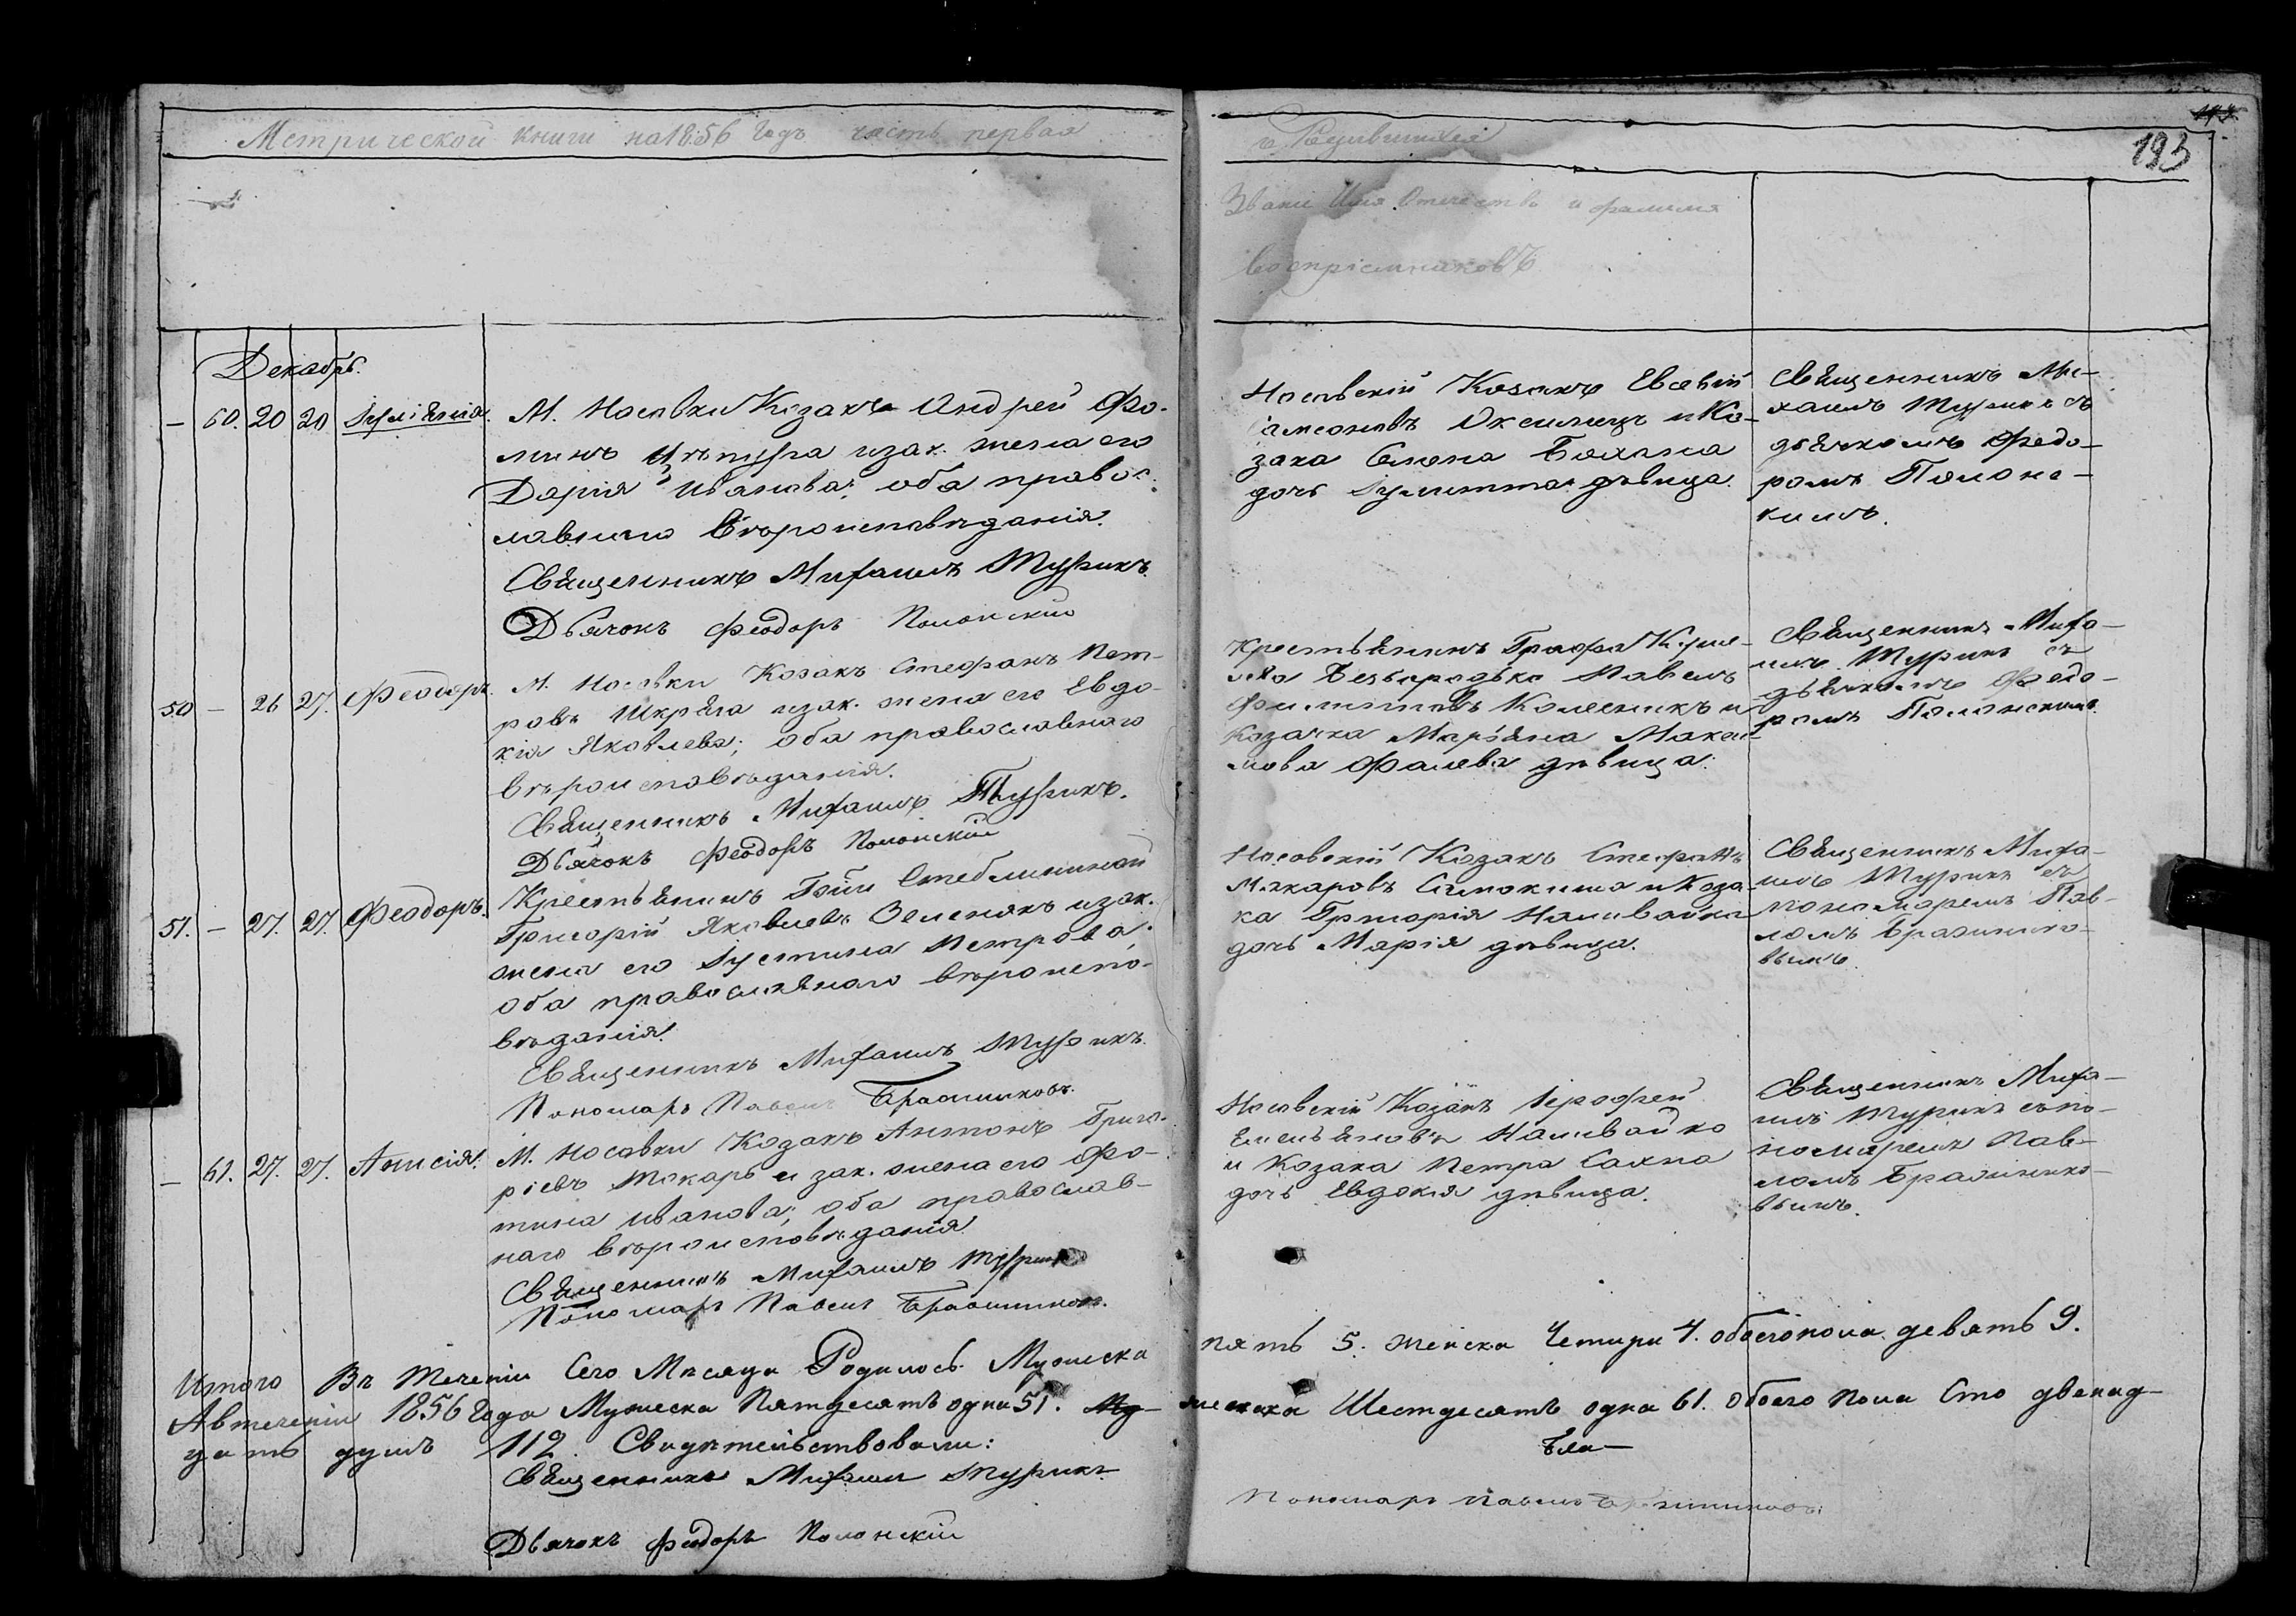 Метрической книги на 1856 годъ часть первая
о Родившихся
193
Званіе Имя Отечество и фамилия
воспріемниковъ
Декабрь.
— 60. 20 20 Іуліянія. М. Носовки Козакъ Андрей Фо-
минъ и зак. жена его
Дарія Иванова; оба правос-
лавнаго вѣроисповѣданія.
Священникъ Михаилъ Турикъ.
Дьячокъ Феодоръ Полонскій
Носовскій Козакъ Евсевій
Самсоновъ и Ко-
зака Симона Бохана
дочь Іулитта дѣвица.
Священникъ Ми-
хаилъ Турикъ съ
дьячкомъ Федо-
ромъ Полонс-
кимъ.
50 — 26 27. Феодоръ. М. Носовки Козакъ Стефанъ Пет-
ровъ Шкряба и зак. жена его Евдо-
кія Яковлева; оба православнаго
вѣроисповѣданія.
Священникъ Михаилъ Турикъ.
Дьячокъ Феодоръ Полонскій
Крестьянинъ Графа Куше-
лева Безбородько Павелъ
Филиповъ Колесникъ и
Козачка Марьяна Макси-
мова дѣвица.
Священникъ Миха-
илъ Турикъ съ
дьячкомъ Федо-
ромъ Полонскимъ.
51. — 27. 27. Феодоръ. Крестьянинъ Гпжи Стеблининой
Григорій Яковлевъ Зеленякъ и зак.
жена его Іустина Петрова;
оба православнаго вѣроиспо-
вѣданія.
Священникъ Михаилъ Турикъ.
Пономарь Павелъ Бражниковъ.
Носовскій Козакъ Стефанъ
Макаровъ и Коза-
ка Григорія Наливайка
дочь Марія дѣвица.
Священникъ Миха-
илъ Турикъ съ
пономаремъ Пав-
ломъ Бражнико-
вымъ.
— 61. 27. 27. Анисія. М. Носовки Козакъ Антонъ Григо-
ріевъ Токарь и зак. жена его Фо-
тина Иванова; оба православ-
наго вѣроисповѣданія.
Священникъ Михаилъ Турикъ
Пономарь Павелъ Бражниковъ.
Носовскій Козакъ Іерофей
Емельяновъ Наливайко
и Козака Петра Сахна
дочь Евдокія дѣвица.
Священникъ Миха-
илъ Турикъ съ по-
номаремъ Пав-
ломъ Бражнико-
вымъ.
Итого Въ теченіи Сего Месяца Родилось. Мужеска пять 5. женска Четыри 4. обоего пола девять 9.
А втеченіи 1856 года Мужеска Пятдесятъ одна 51. женска Шестдесятъ одна 61. обоего пола Сто двенад-
цать душъ 112. Свидѣтельствовали:
Священникъ Михаилъ Турикъ
Дьячокъ Феодоръ Полонскій
Пономарь Павелъ Бражниковъ.